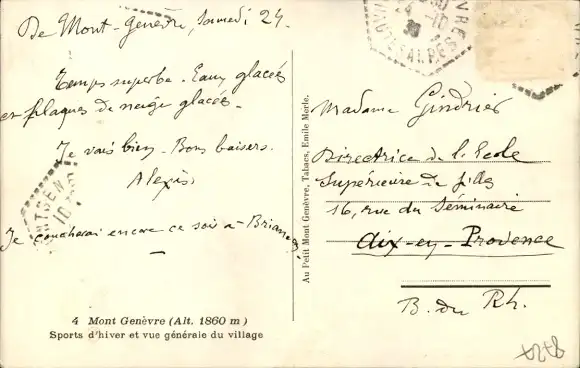 De Mont-Genèvre, Samedi 24.
Temps superbe. Eaux glacées
en plaques de neige glacée.
Je vais bien. Bons baisers.
Alexis
Je coucherai encore ce soir à Briançon
4 Mont Genèvre (Alt. 1860 m)
Sports d'hiver et vue générale du village
Au Petit Mont Genèvre, Tabacs, Emile Merle.
Madame Gindrier
Directrice de l'Ecole
Supérieure de filles
16, rue du Séminaire
Aix-en-Provence
B. du Rh.